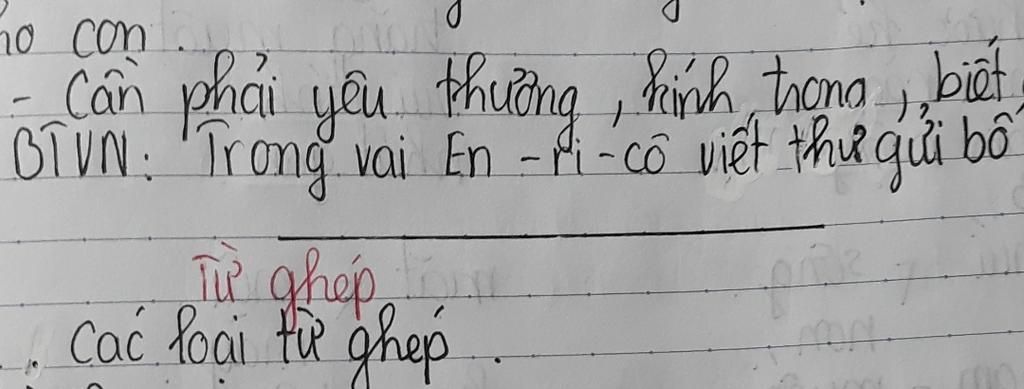 ho con.
- Cần phải yêu thương, kính trọng, biết
BTVN: Trong vai En-ri-cô viết thư gửi bố
Từ ghép
. Các loại từ ghép.